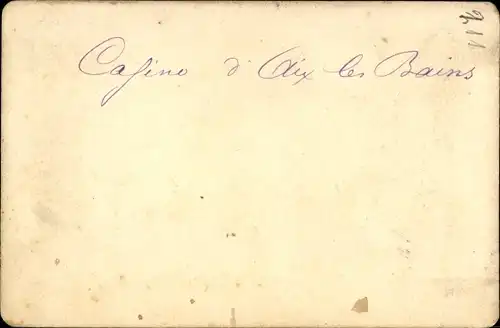 Casino d'Aix les Bains